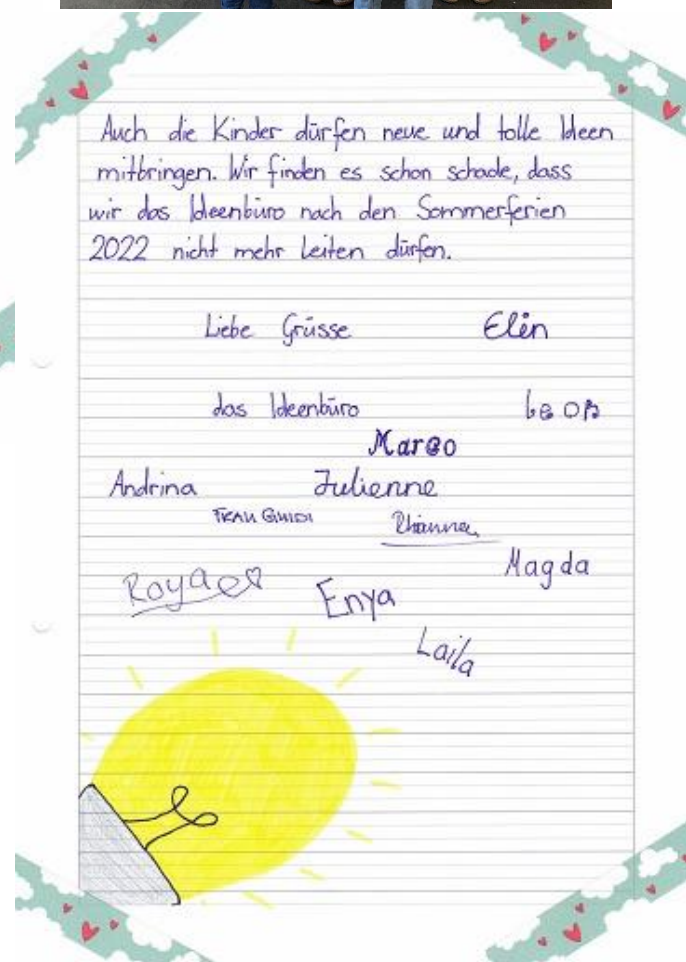 Auch die Kinder dürfen neue und tolle Ideen
mitbringen. Wir finden es schon schade, dass
wir das Ideenbüro nach den Sommerferien
2022 nicht mehr Leiten dürfen.
Liebe Grüsse Elin
das Ideenbüro Leon
Marco
Andrina Julienne
FRAU GUIDI Rhianna
Magda
Roya
Enya
Laila